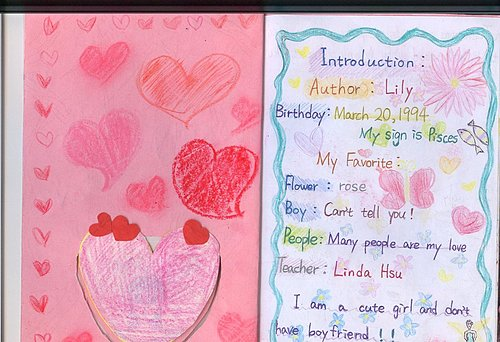 Introduction :
Author : Lily
Birthday : March 20, 1994
My sign is Pisces
My Favorite :
Flower : rose
Boy : Can't tell you !
People : Many people are my love
Teacher : Linda Hsu
I am a cute girl and don't
have boyfriend ! !